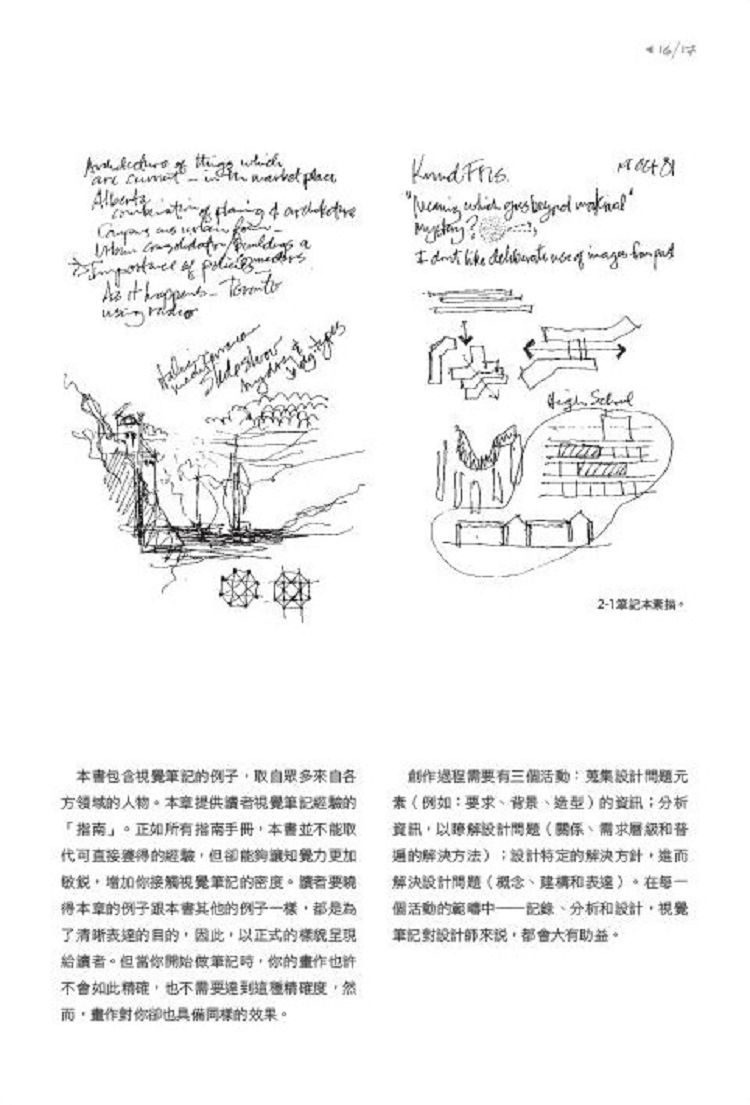 16/17
Architecture of things which
are current – in the market place
Alberta
combination of planing & architecture
Campus as urban form –
Urban consolidation/buildings a
Importance of policies
As it happens – Toronto
using radio
Italian
mediterranean
Slideshow
bldg types
Knud Friis.
Oct 81
"Meaning which goes beyond material"
mystery?
I don't like deliberate use of images from past
High School
2-1筆記本素描。
本書包含視覺筆記的例子，取自眾多來自各
方領域的人物。本章提供讀者視覺筆記經驗的
「指南」。正如所有指南手冊，本書並不能取
代可直接獲得的經驗，但卻能夠讓知覺力更加
敏銳，增加你接觸視覺筆記的密度。讀者要曉
得本章的例子跟本書其他的例子一樣，都是為
了清晰表達的目的，因此，以正式的樣貌呈現
給讀者。但當你開始做筆記時，你的畫作也許
不會如此精確，也不需要達到這種精確度，然
而，畫作對你卻也具備同樣的效果。
創作過程需要有三個活動：蒐集設計問題元
素（例如：要求、背景、造型）的資訊；分析
資訊，以瞭解設計問題（關係、需求層級和普
遍的解決方法）；設計特定的解決方針，進而
解決設計問題（概念、建構和表達）。在每一
個活動的範疇中——記錄、分析和設計，視覺
筆記對設計師來說，都會大有助益。